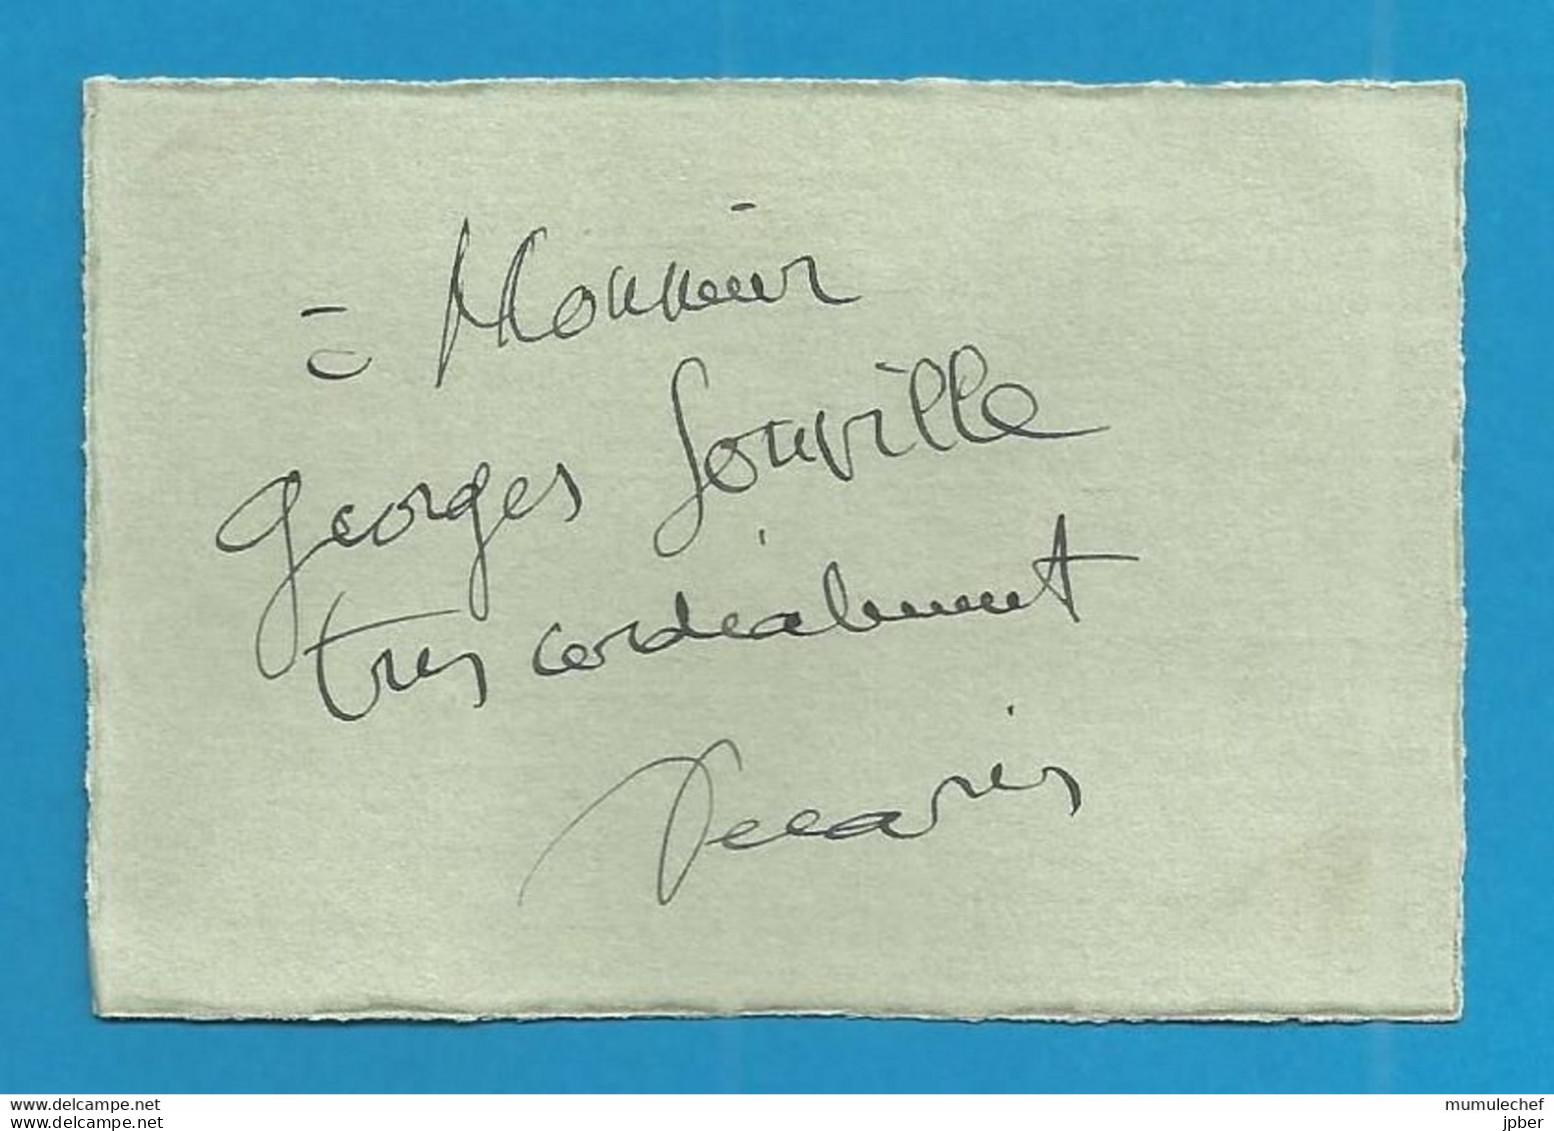 à Monsieur
Georges Souville
très cordialement
Decaris
www.delcampe.net
mumulechef
www.delcampe.net
jpber